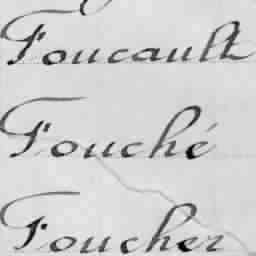 Foucault
Fouché
Foucher